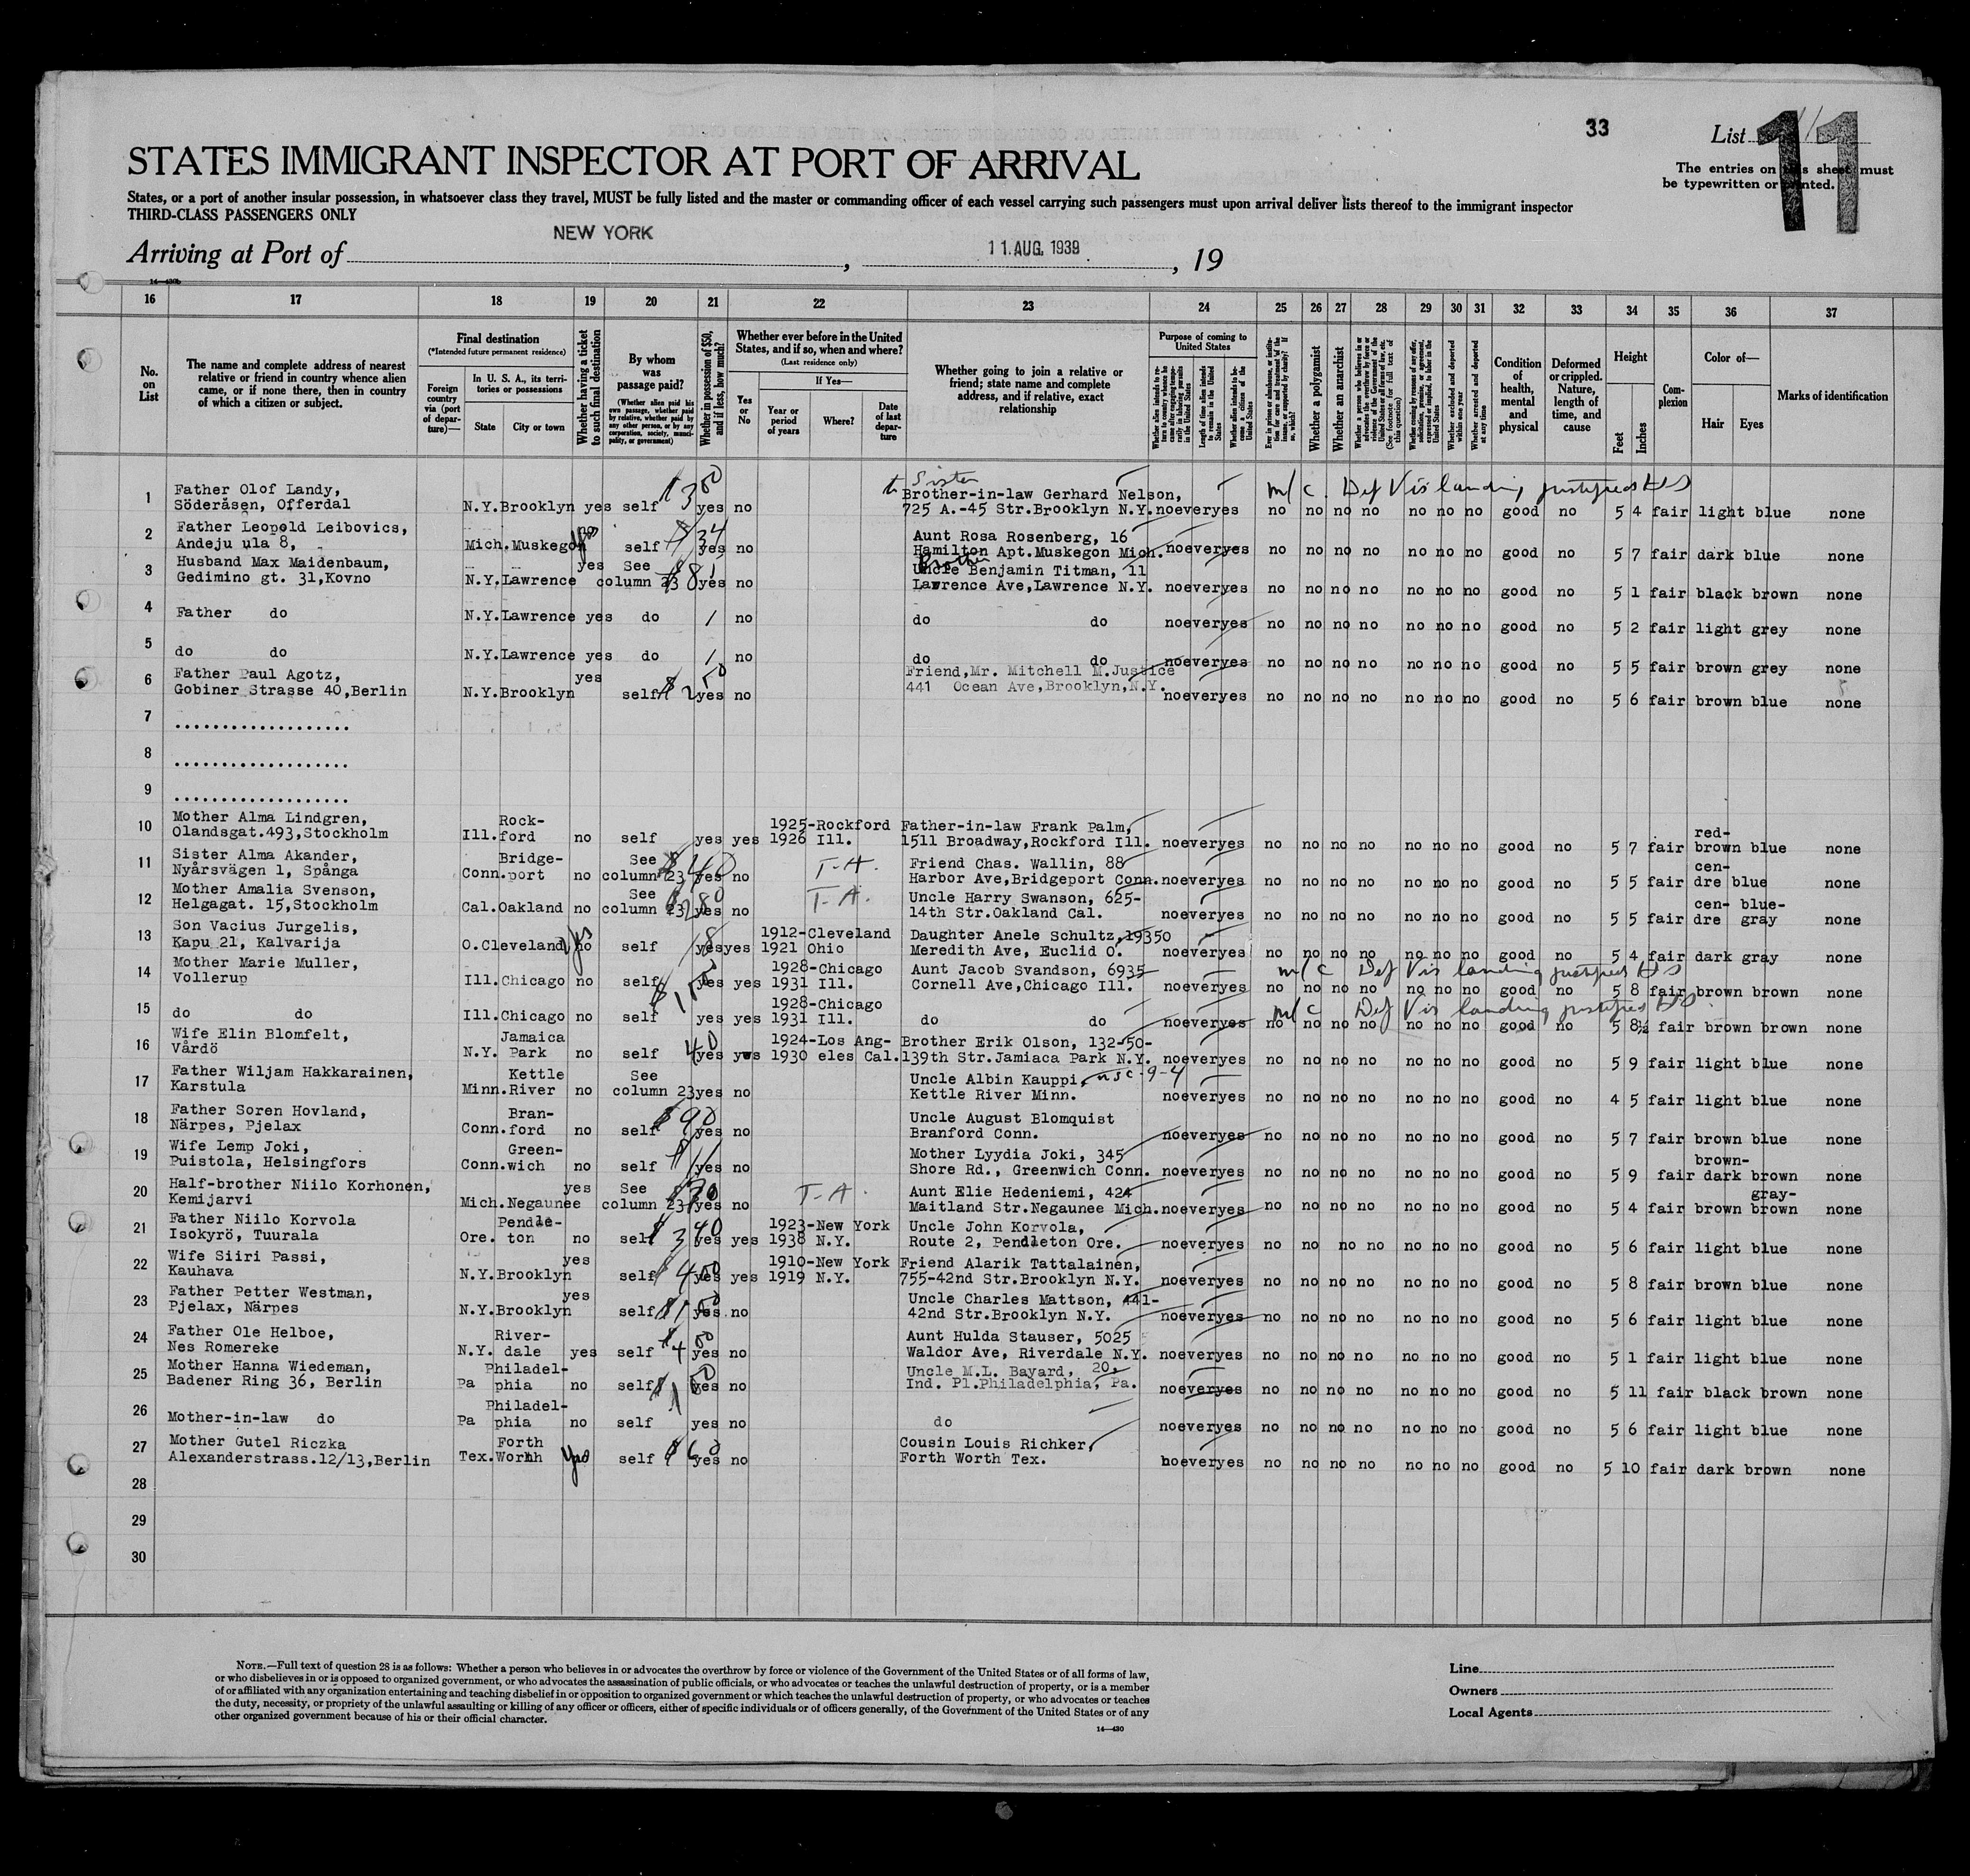 33
List 11
STATES IMMIGRANT INSPECTOR AT PORT OF ARRIVAL
The entries on this sheet must
be typewritten or printed.
States, or a port of another insular possession, in whatsoever class they travel, MUST be fully listed and the master or commanding officer of each vessel carrying such passengers must upon arrival deliver lists thereof to the immigrant inspector
THIRD-CLASS PASSENGERS ONLY
Arriving at Port of NEW YORK, 11.AUG.1939, 19
14-430b
16 17 18 19 20 21 22 23 24 25 26 27 28 29 30 31 32 33 34 35 36 37
No. on List
The name and complete address of nearest relative or friend in country whence alien came, or if none there, then in country of which a citizen or subject.
Final destination
(*Intended future permanent residence)
Foreign country via (port of departure)—
In U. S. A., its territories or possessions
State
City or town
Whether having a ticket to such final destination
By whom was passage paid?
(Whether alien paid his own passage, whether paid by relative, whether paid by any other person, or by any corporation, society, municipality, or government)
Whether in possession of $50, and if less, how much?
Whether ever before in the United States, and if so, when and where?
(Last residence only)
Yes or No
If Yes—
Year or period of years
Where?
Date of last departure
Whether going to join a relative or friend; state name and complete address, and if relative, exact relationship
Purpose of coming to United States
Length of time alien intends to remain in the United States
Whether alien intends to become a citizen of the United States
Whether a polygamist
Whether an anarchist
(See footnote for full text of this question)
Whether excluded and deported within one year
Whether arrested and deported at any time
Condition of health, mental and physical
Deformed or crippled. Nature, length of time, and cause
Height
Feet
Inches
Complexion
Color of—
Hair
Eyes
Marks of identification
1 Father Olof Landy, Söderåsen, Offerdal N.Y. Brooklyn yes self $ 350 yes no Sister Brother-in-law Gerhard Nelson, 725 A.-45 Str.Brooklyn N.Y. no ever yes m/c Def Vis landing justified no no no no no no no good no 5 4 fair light blue none
2 Father Leopold Leibovics, Andeju ula 8, Mich. Muskegon self $ 34 yes no Aunt Rosa Rosenberg, 16 Hamilton Apt.Muskegon Mich. no ever yes no no no no no no no good no 5 7 fair dark blue none
3 Husband Max Maidenbaum, Gedimino gt. 31,Kovno N.Y. Lawrence yes See column 23 yes no Brother Uncle Benjamin Titman, 11 Lawrence Ave,Lawrence N.Y. no ever yes no no no no no no no good no 5 1 fair black brown none
4 Father do N.Y. Lawrence yes do / no do do no ever yes no no no no no no no good no 5 2 fair light grey none
5 do do N.Y. Lawrence yes do / no do do no ever yes no no no no no no no good no 5 5 fair brown grey none
6 Father Paul Agotz, Gobiner Strasse 40,Berlin N.Y. Brooklyn yes self $ 250 yes no Friend,Mr. Mitchell M.Justice 441 Ocean Ave,Brooklyn,N.Y. no ever yes no no no no no no no good no 5 6 fair brown blue none
7 ...................
8 ...................
9 ...................
10 Mother Alma Lindgren, Olandsgat.493,Stockholm Ill. Rock-ford no self yes yes 1925-1926 Rockford Ill. Father-in-law Frank Palm, 1511 Broadway,Rockford Ill. no ever yes no no no no no no no good no 5 7 fair red-brown blue none
11 Sister Alma Akander, Nyårsvägen 1, Spånga Conn. Bridge-port no See column 23 yes no T-A. Friend Chas. Wallin, 88 Harbor Ave,Bridgeport Conn. no ever yes no no no no no no no good no 5 5 fair cen-dre blue none
12 Mother Amalia Svenson, Helgagat. 15,Stockholm Cal. Oakland no See column 23 $ 280 yes no T-A. Uncle Harry Swanson, 625-14th Str.Oakland Cal. no ever yes no no no no no no no good no 5 5 fair cen-dre blue-gray none
13 Son Vacius Jurgelis, Kapu 21, Kalvarija O. Cleveland yes no self 18 yes yes 1912-1921 Cleveland Ohio Daughter Anele Schultz,19350 Meredith Ave, Euclid O. no ever yes no no no no no no no good no 5 4 fair dark gray none
14 Mother Marie Muller, Vollerup Ill. Chicago no self yes yes 1928-1931 Chicago Ill. Aunt Jacob Svandson, 6935 Cornell Ave,Chicago Ill. no ever yes m/c Def Vis landing justified no no no no no no no good no 5 8 fair brown brown none
15 do do Ill. Chicago no self yes yes 1928-1931 Chicago Ill. do do no ever yes m/c Def Vis landing justified no no no no no no no good no 5 8½ fair brown brown none
16 Wife Elin Blomfelt, Vårdö N.Y. Jamaica Park no self 40 yes yes 1924-1930 Los Ang-eles Cal. Brother Erik Olson, 132-50-139th Str.Jamiaca Park N.Y. no ever yes no no no no no no no good no 5 9 fair light blue none
17 Father Wiljam Hakkarainen, Karstula Minn. Kettle River no See column 23 yes no Uncle Albin Kauppi, Kettle River Minn. no ever yes no no no no no no no good no 4 5 fair light blue none
18 Father Soren Hovland, Närpes, Pjelax Conn. Bran-ford no self $ 90 yes no Uncle August Blomquist Branford Conn. no ever yes no no no no no no no good no 5 7 fair brown blue none
19 Wife Lemp Joki, Puistola, Helsingfors Conn. Green-wich no self $ 11 yes no Mother Lyydia Joki, 345 Shore Rd., Greenwich Conn. no ever yes no no no no no no no good no 5 9 fair brown-dark brown none
20 Half-brother Niilo Korhonen, Kemijarvi Mich. Negaunee yes See column 23 yes no T-A. Aunt Elie Hedeniemi, 424 Maitland Str.Negaunee Mich. no ever yes no no no no no no no good no 5 4 fair brown gray-brown none
21 Father Niilo Korvola Isokyrö, Tuurala Ore. Pendle-ton no self $ 340 yes yes 1923-1938 New York N.Y. Uncle John Korvola, Route 2, Pendleton Ore. no ever yes no no no no no no no good no 5 6 fair light blue none
22 Wife Siiri Passi, Kauhava N.Y. Brooklyn yes self $ 400 yes yes 1910-1919 New York N.Y. Friend Alarik Tattalainen, 755-42nd Str.Brooklyn N.Y. no ever yes no no no no no no no good no 5 8 fair brown blue none
23 Father Petter Westman, Pjelax, Närpes N.Y. Brooklyn yes self yes no Uncle Charles Mattson, 441-42nd Str.Brooklyn N.Y. no ever yes no no no no no no no good no 5 6 fair light blue none
24 Father Ole Helboe, Nes Romereke N.Y. River-dale yes self $ 450 yes no Aunt Hulda Stauser, 5025 Waldor Ave, Riverdale N.Y. no ever yes no no no no no no no good no 5 1 fair light blue none
25 Mother Hanna Wiedeman, Badener Ring 36, Berlin Pa Philadel-phia no self yes no Uncle M.L. Bayard, 20, Ind. Pl.Philadelphia, Pa. no ever yes no no no no no no no good no 5 11 fair black brown none
26 Mother-in-law do Pa Philadel-phia no self yes no do no ever yes no no no no no no no good no 5 6 fair light blue none
27 Mother Gutel Riczka Alexanderstrass.12/13,Berlin Tex. Forth Worth yes self $ 60 yes no Cousin Louis Richker, Forth Worth Tex. no ever yes no no no no no no no good no 5 10 fair dark brown none
28
29
30
NOTE.—Full text of question 28 is as follows: Whether a person who believes in or advocates the overthrow by force or violence of the Government of the United States or of all forms of law,
or who disbelieves in or is opposed to organized government, or who advocates the assassination of public officials, or who advocates or teaches the unlawful destruction of property, or is a member
of or affiliated with any organization entertaining and teaching disbelief in or opposition to organized government or which teaches the unlawful destruction of property, or who advocates or teaches
the duty, necessity, or propriety of the unlawful assaulting or killing of any officer or officers, either of specific individuals or of officers generally, of the Government of the United States or of any
other organized government because of his or their official character.
14-430
Line
Owners
Local Agents